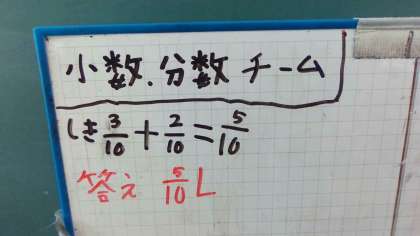 小数.分数チーム
しき 3/10 + 2/10 = 5/10
答え 5/10 L